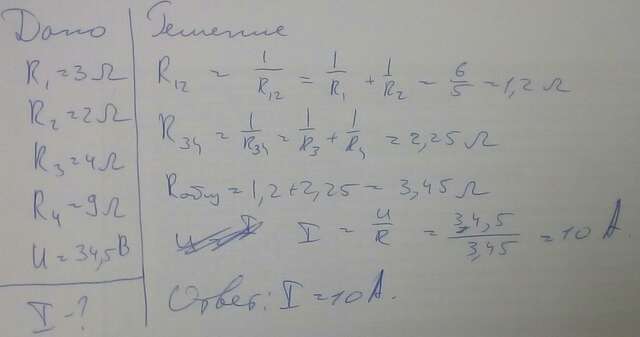 Дано
R₁ = 3 Ω
R₂ = 2 Ω
R₃ = 4 Ω
R₄ = 9 Ω
U = 34,5 В
I - ?
Решение
R₁₂ = 1/R₁₂ = 1/R₁ + 1/R₂ = 6/5 = 1,2 Ω
R₃₄ = 1/R₃₄ = 1/R₃ + 1/R₄ = 2,25 Ω
Rобщ = 1,2 + 2,25 = 3,45 Ω
I = U/R = 34,5/3,45 = 10 А.
Ответ: I = 10 А.